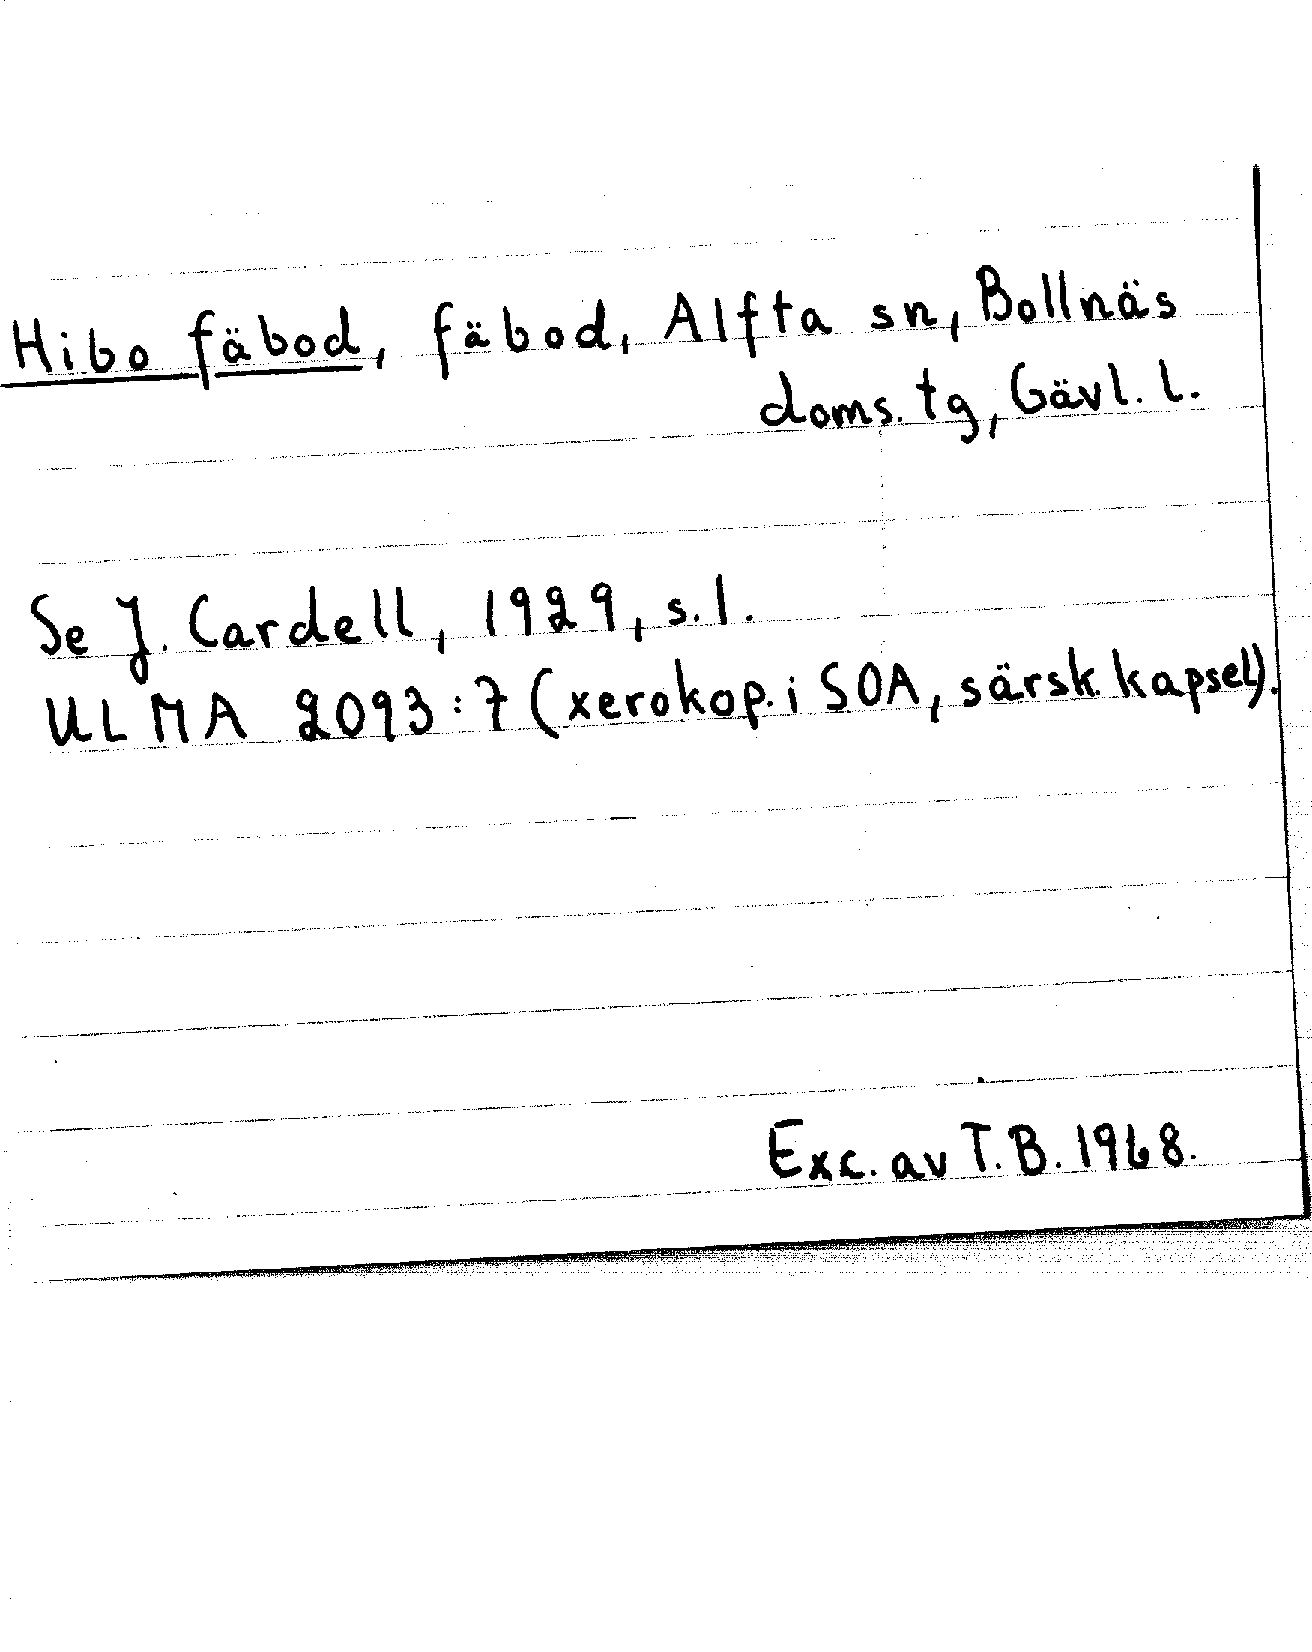 Hibo fäbod, fäbod, Alfta sn, Bollnäs
doms. tg, Gävl. l.
Se J. Cardell, 1929, s. 1.
ULMA 2093:7 (xerokop. i SOA, särsk. kapsel).
Exc. av T.B. 1968.